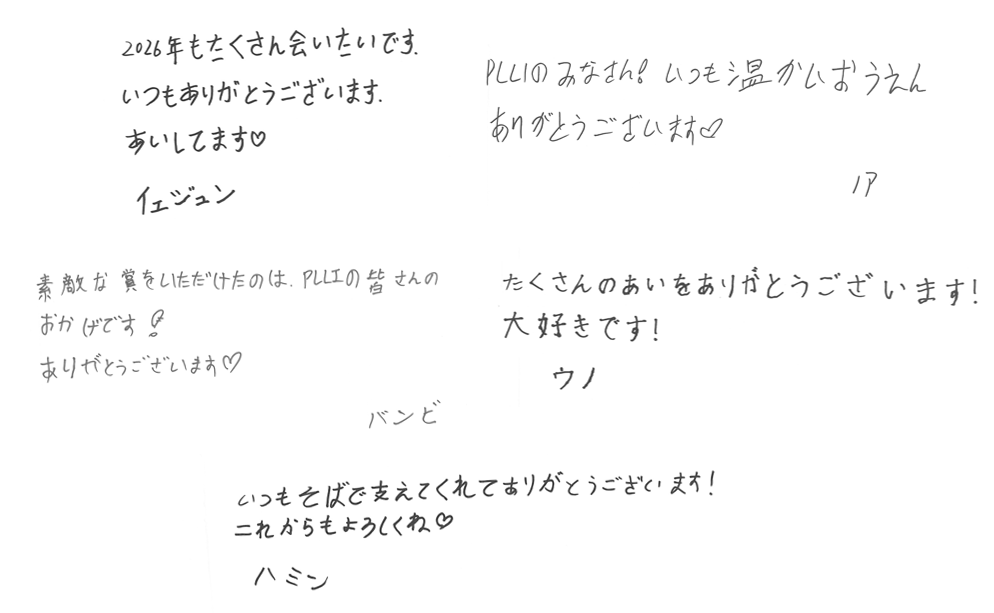 2026年もたくさん会いたいです.
いつもありがとうございます.
あいしてます♡
イェジュン
PLLIのみなさん! いつも温かいおうえん
ありがとうございます♡
ノア
素敵な賞をいただけたのは、PLLIの皆さんの
おかげです!
ありがとうございます♡
バンビ
たくさんのあいをありがとうございます!
大好きです!
ウノ
いつもそばで支えてくれてありがとうございます!
これからもよろしくね♡
ハミン